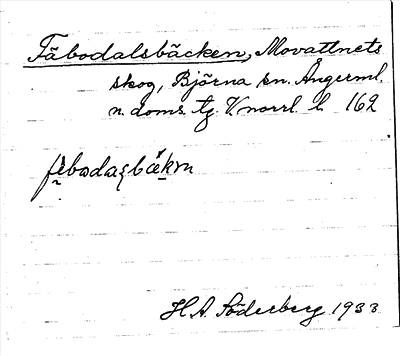 Fäbodalsbäcken, Movattnets
skog, Björna sn. Ångerml.
n. doms. tg. V.norrl. l. 162
H.A. Söderberg 1933